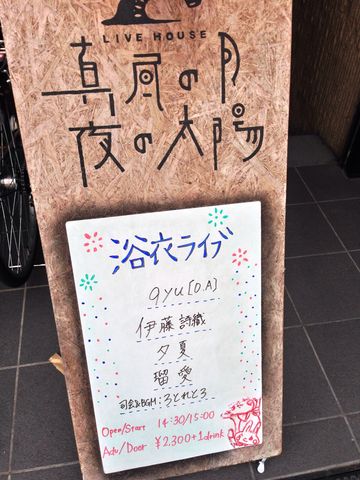 LIVE HOUSE
真昼の月
夜の太陽
浴衣ライブ
gyu[O.A]
伊藤詩織
夕夏
瑠愛
司会&BGM:ろとれとろ
Open/Start 14:30/15:00
Adv/Door ¥2,300+1drink